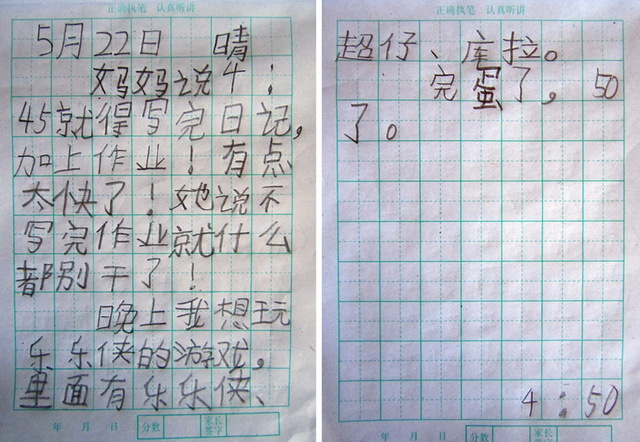 正确执笔 认真听讲
5月22日 晴
妈妈说4:
45就得写完日记,
加上作业!有点
太快了!她说不
写完作业就什么
都别干了!
晚上我想玩
乐乐侠的游戏,
里面有乐乐侠、
年 月 日 分数 家长签字
正确执笔 认真听讲
超仔、库拉。
完蛋了,50
了。
4:50
年 月 日 分数 家长签字